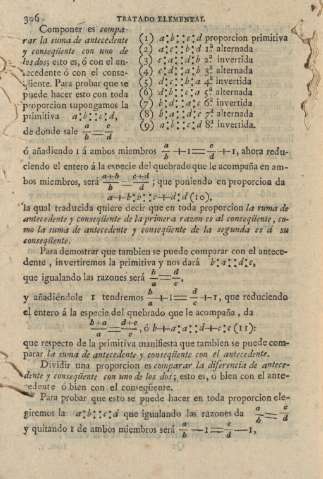 306 TRATADO ELEMENTAL
Componer es compa-
rar la suma de antecedente
y conseqüente con uno de
los dos; esto es, ó con el an-
tecedente ó con el conse-
qüente. Para probar que se
puede hacer esto con toda
proporcion supongamos la
primitiva a:b::c:d,
de donde sale a/b = c/d
(1) a:b::c:d proporcion primitiva
(2) 1ª alternada
(3) 2ª invertida
(4) 3ª alternada
(5) 4ª invertida
(6) 5ª alternada
(7) 6ª invertida
(8) 7ª alternada
(9) 8ª invertida.
ó añadiendo 1 á ambos miembros a/b +1 = c/d +1, ahora redu-
ciendo el entero á la especie del quebrado que le acompaña en am-
bos miembros, será a+b/b = c+d/d ; que poniendo en proporcion da
a+b:b::c+d:d (10),
la qual traducida quiere decir que en toda proporcion la suma de
antecedente y conseqüente de la primera razon es al conseqüente, co-
mo la suma de antecedente y conseqüente de la segunda es á su
conseqüente.
Para demostrar que tambien se puede comparar con el antece-
dente, invertiremos la primitiva y nos dará b:a::d:c,
que igualando las razones será b/a = d/c
y añadiéndole 1 tendremos b/a +1 = d/c +1, que reduciendo
el entero á la especie del quebrado que le acompaña, da
b+a/a = d+c/c , ó b+a:a::d+c:c (11):
que respecto de la primitiva manifiesta que tambien se puede com-
parar la suma de antecedente y conseqüente con el antecedente.
Dividir una proporcion es comparar la diferencia de antece-
dente y conseqüente con uno de los dos; esto es, ó bien con el ante-
cedente ó bien con el conseqüente.
Para probar que esto se puede hacer en toda proporcion ele-
giremos la a:b::c:d que igualando las razones da a/b = c/d
y quitando 1 de ambos miembros será a/b —1 = c/d —1,